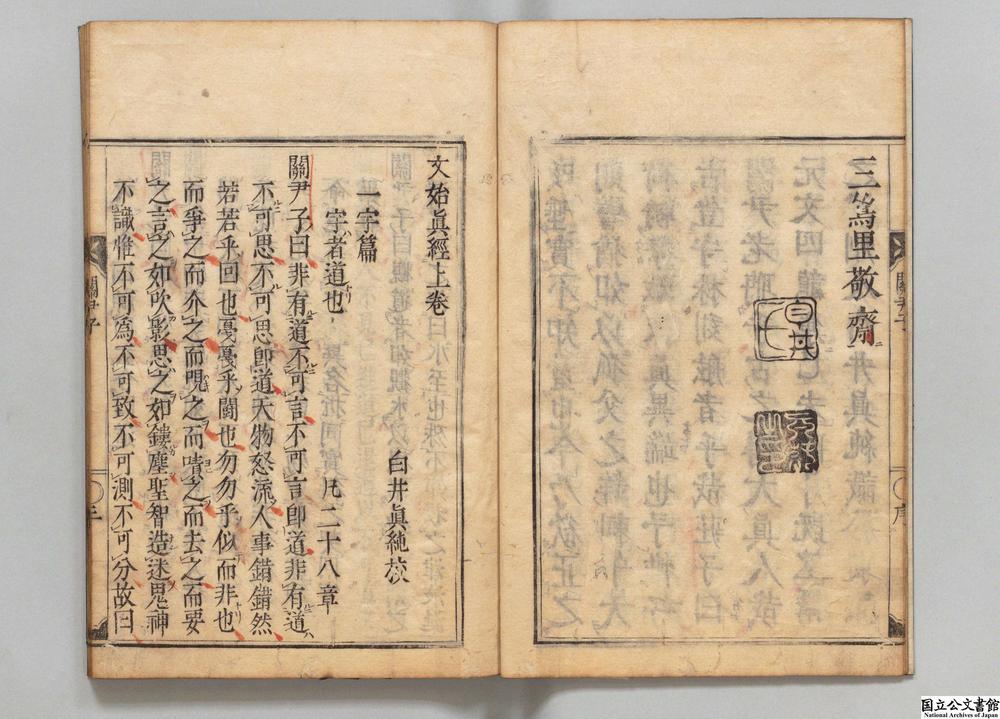 三篶里敬齋
白井
氏
文始眞經上卷
白井眞純校
一宇篇
宇者道也 凡二十八章
關尹子曰非有道不可言不可言卽道非有道
不可思不可思卽道天物怒流人事錯錯然
若若乎回也戞戞乎鬪也勿勿乎似而非也
而爭之而介之而哯之而嘖之而去之而要
之言之如吹影思之如鏤塵聖智造迷鬼神
不識惟不可爲不可致不可測不可分故曰
關尹子
〇三
〇序
国立公文書館
National Archives of Japan